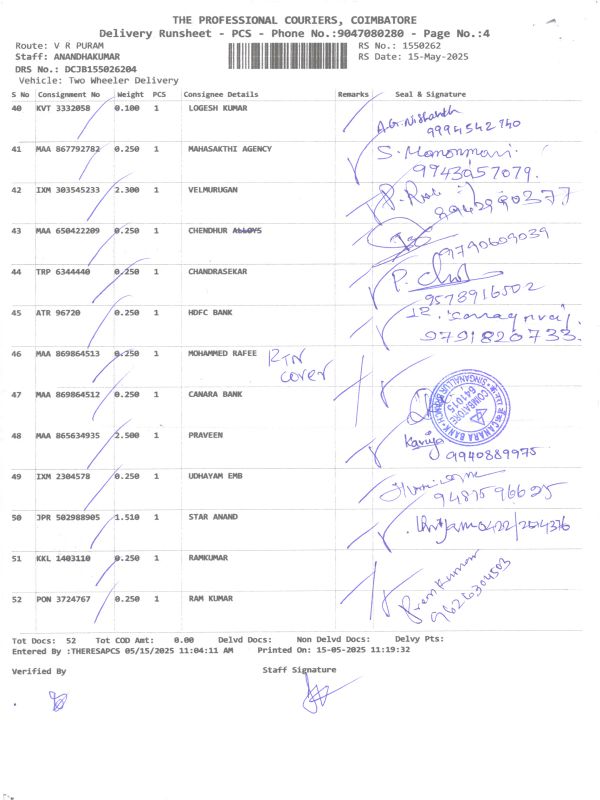 THE PROFESSIONAL COURIERS, COIMBATORE
Delivery Runsheet - PCS - Phone No.:9047080280 - Page No.:4
Route: V R PURAM RS No.: 1550262
Staff: ANANDHAKUMAR RS Date: 15-May-2025
DRS No.: DCJB155026204
Vehicle: Two Wheeler Delivery
S No Consignment No Weight PCS Consignee Details Remarks Seal & Signature
40 KVT 3332058 0.100 1 LOGESH KUMAR A.G. Nishanth
9994542740
41 MAA 867792782 0.250 1 MAHASAKTHI AGENCY S. Manonmari.
9943057079.
42 IXM 303545233 2.300 1 VELMURUGAN
8942990377
43 MAA 650422209 0.250 1 CHENDHUR ALLOYS
9790609039
44 TRP 6344440 0.250 1 CHANDRASEKAR
9578916502
45 ATR 96720 0.250 1 HDFC BANK
9791820733.
46 MAA 869864513 0.250 1 MOHAMMED RAFEE RTN
cover
47 MAA 869864512 0.250 1 CANARA BANK
CANARA BANK COIMBATORE 641015
48 MAA 865634935 2.500 1 PRAVEEN Kaviya
9940889975
49 IXM 2304578 0.250 1 UDHAYAM EMB
9487596625
50 JPR 502988905 1.510 1 STAR ANAND 0422/2574376
51 KKL 1403110 0.250 1 RAMKUMAR
52 PON 3724767 0.250 1 RAM KUMAR Prem Kumar
9626304503
Tot Docs: 52 Tot COD Amt: 0.00 Delvd Docs: Non Delvd Docs: Delvy Pts:
Entered By :THERESAPCS 05/15/2025 11:04:11 AM Printed On: 15-05-2025 11:19:32
Verified By Staff Signature